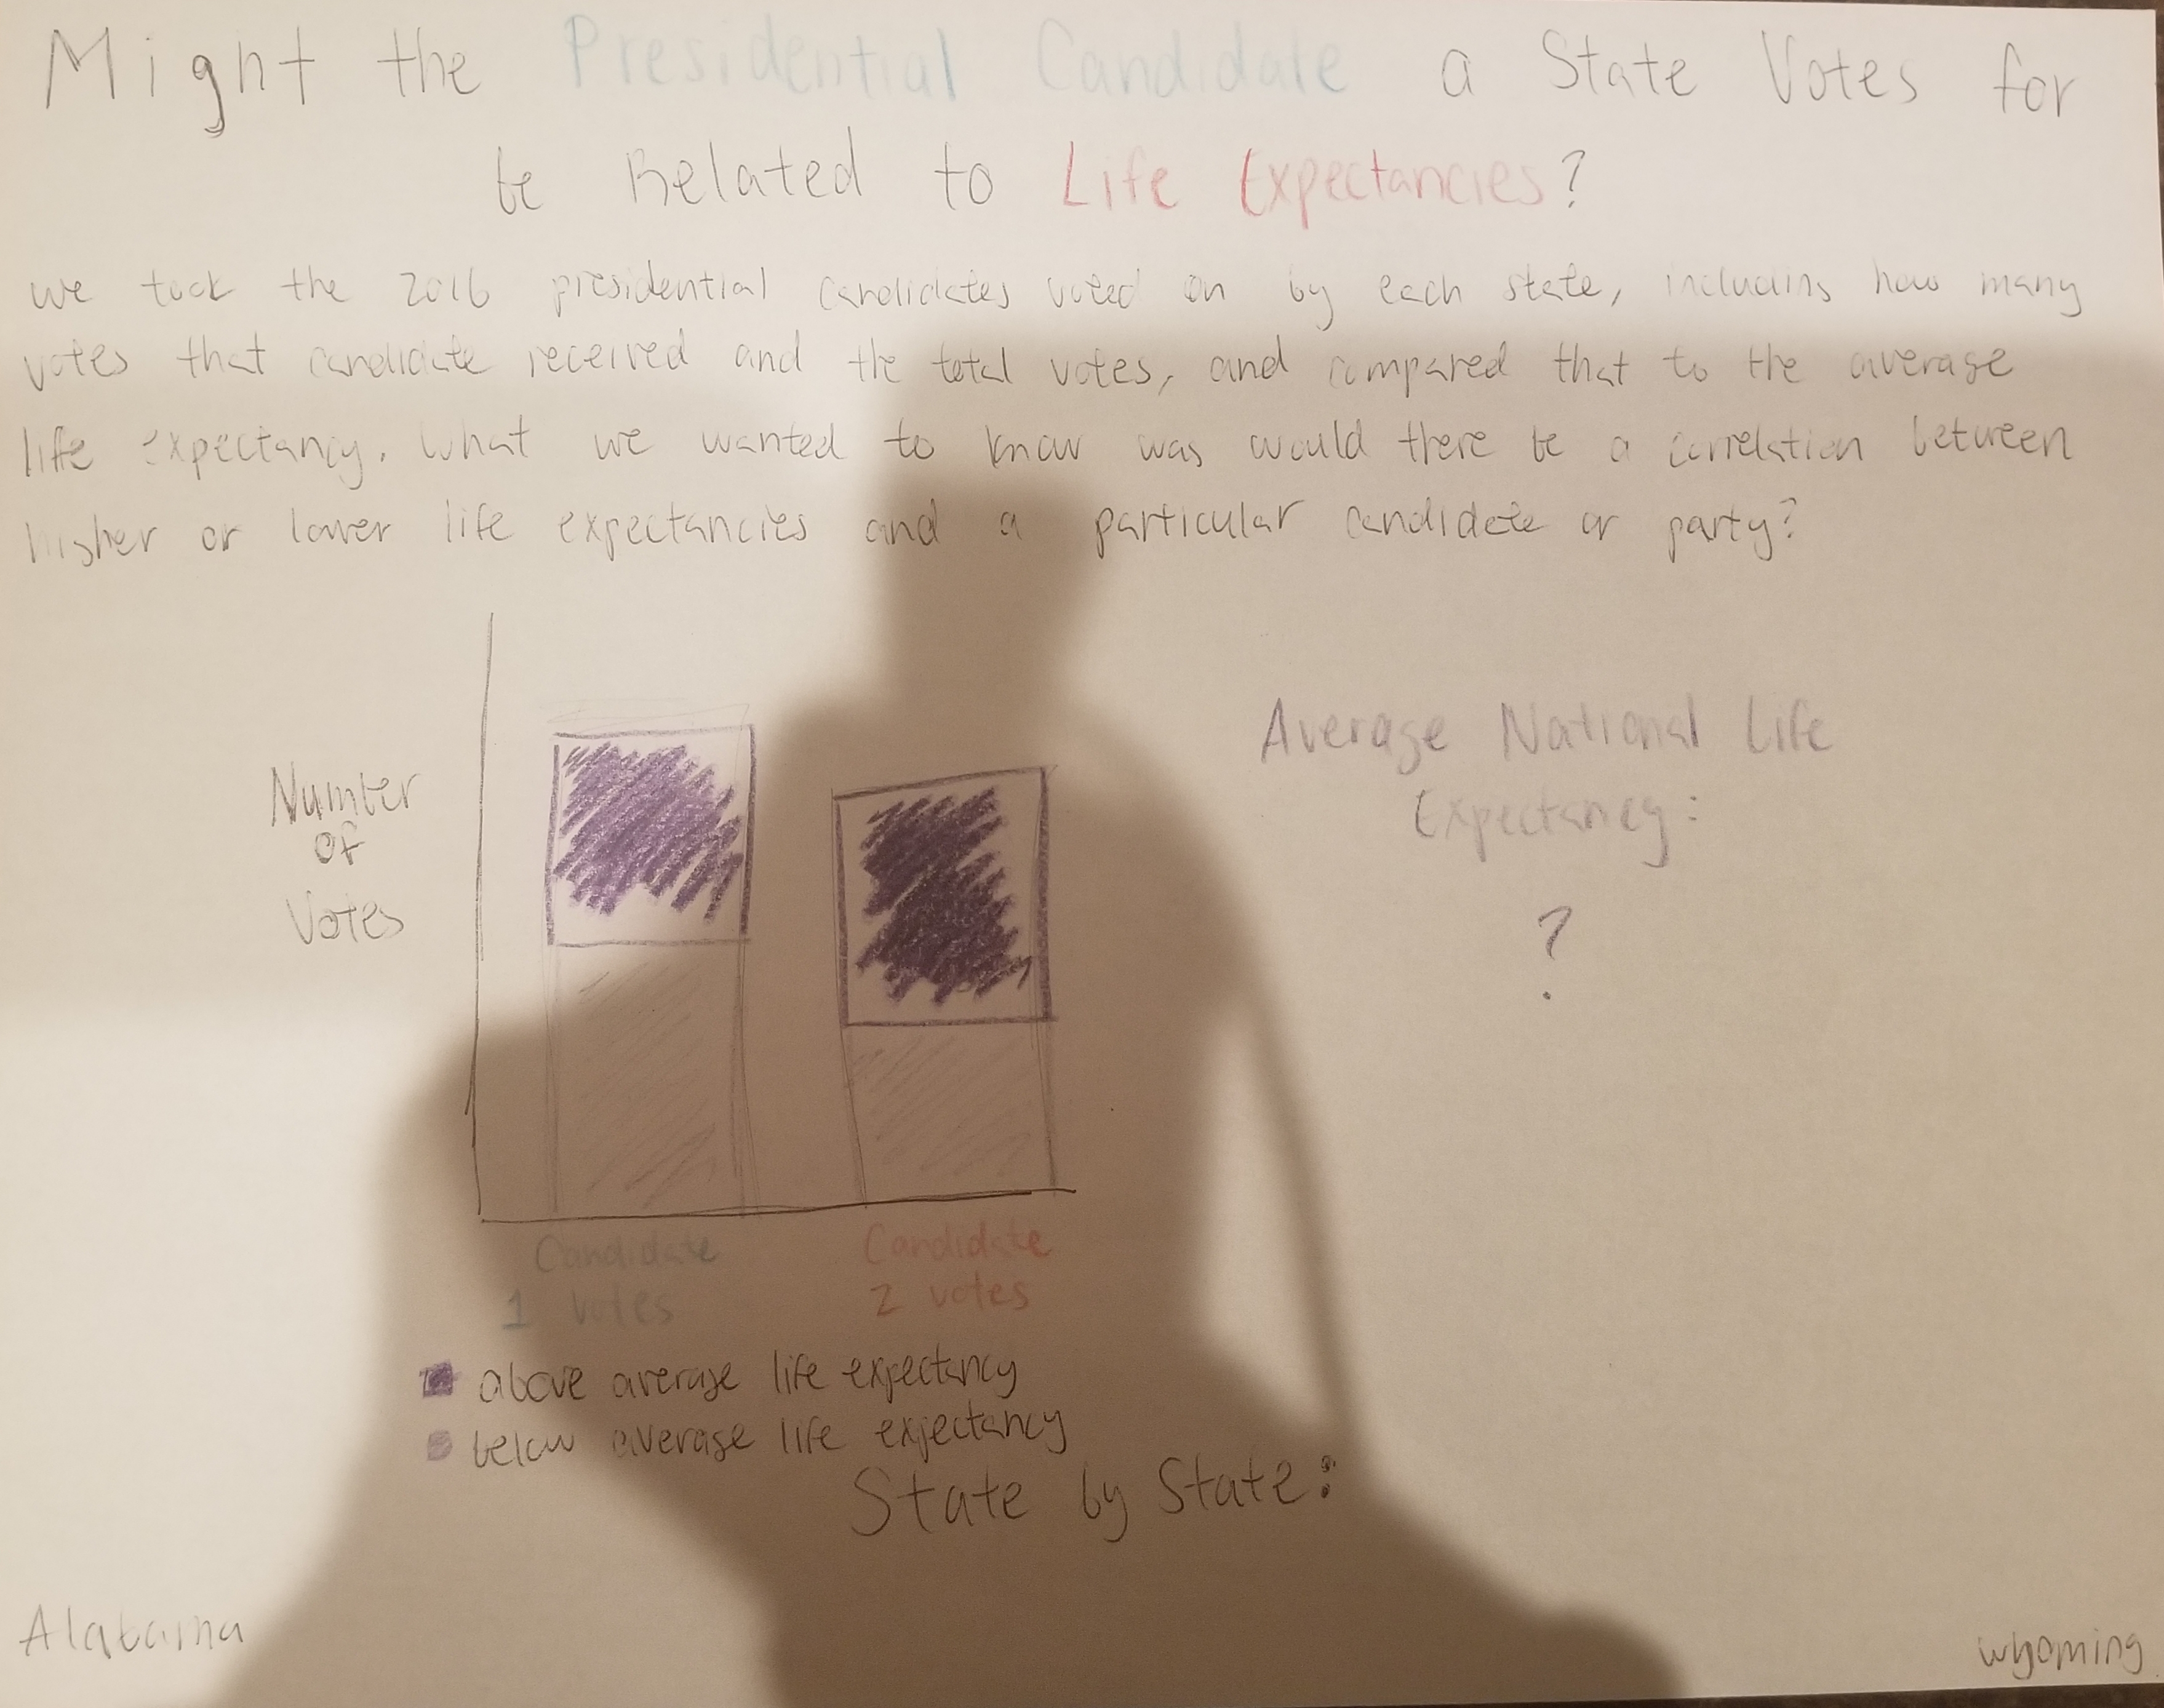 Might the Presidential Candidate a State Votes for
be Related to Life Expectancies?
we took the 2016 presidential candidates voted on by each state, including how many
votes that candidate received and the total votes, and compared that to the average
life expectancy. What we wanted to know was would there be a correlation between
higher or lower life expectancies and a particular candidate or party?
Number
of
Votes
Average National Life
Expectancy:
?
Candidate
1 votes
Candidate
2 votes
above average life expectancy
below average life expectancy
State by State:
Alabama
wyoming